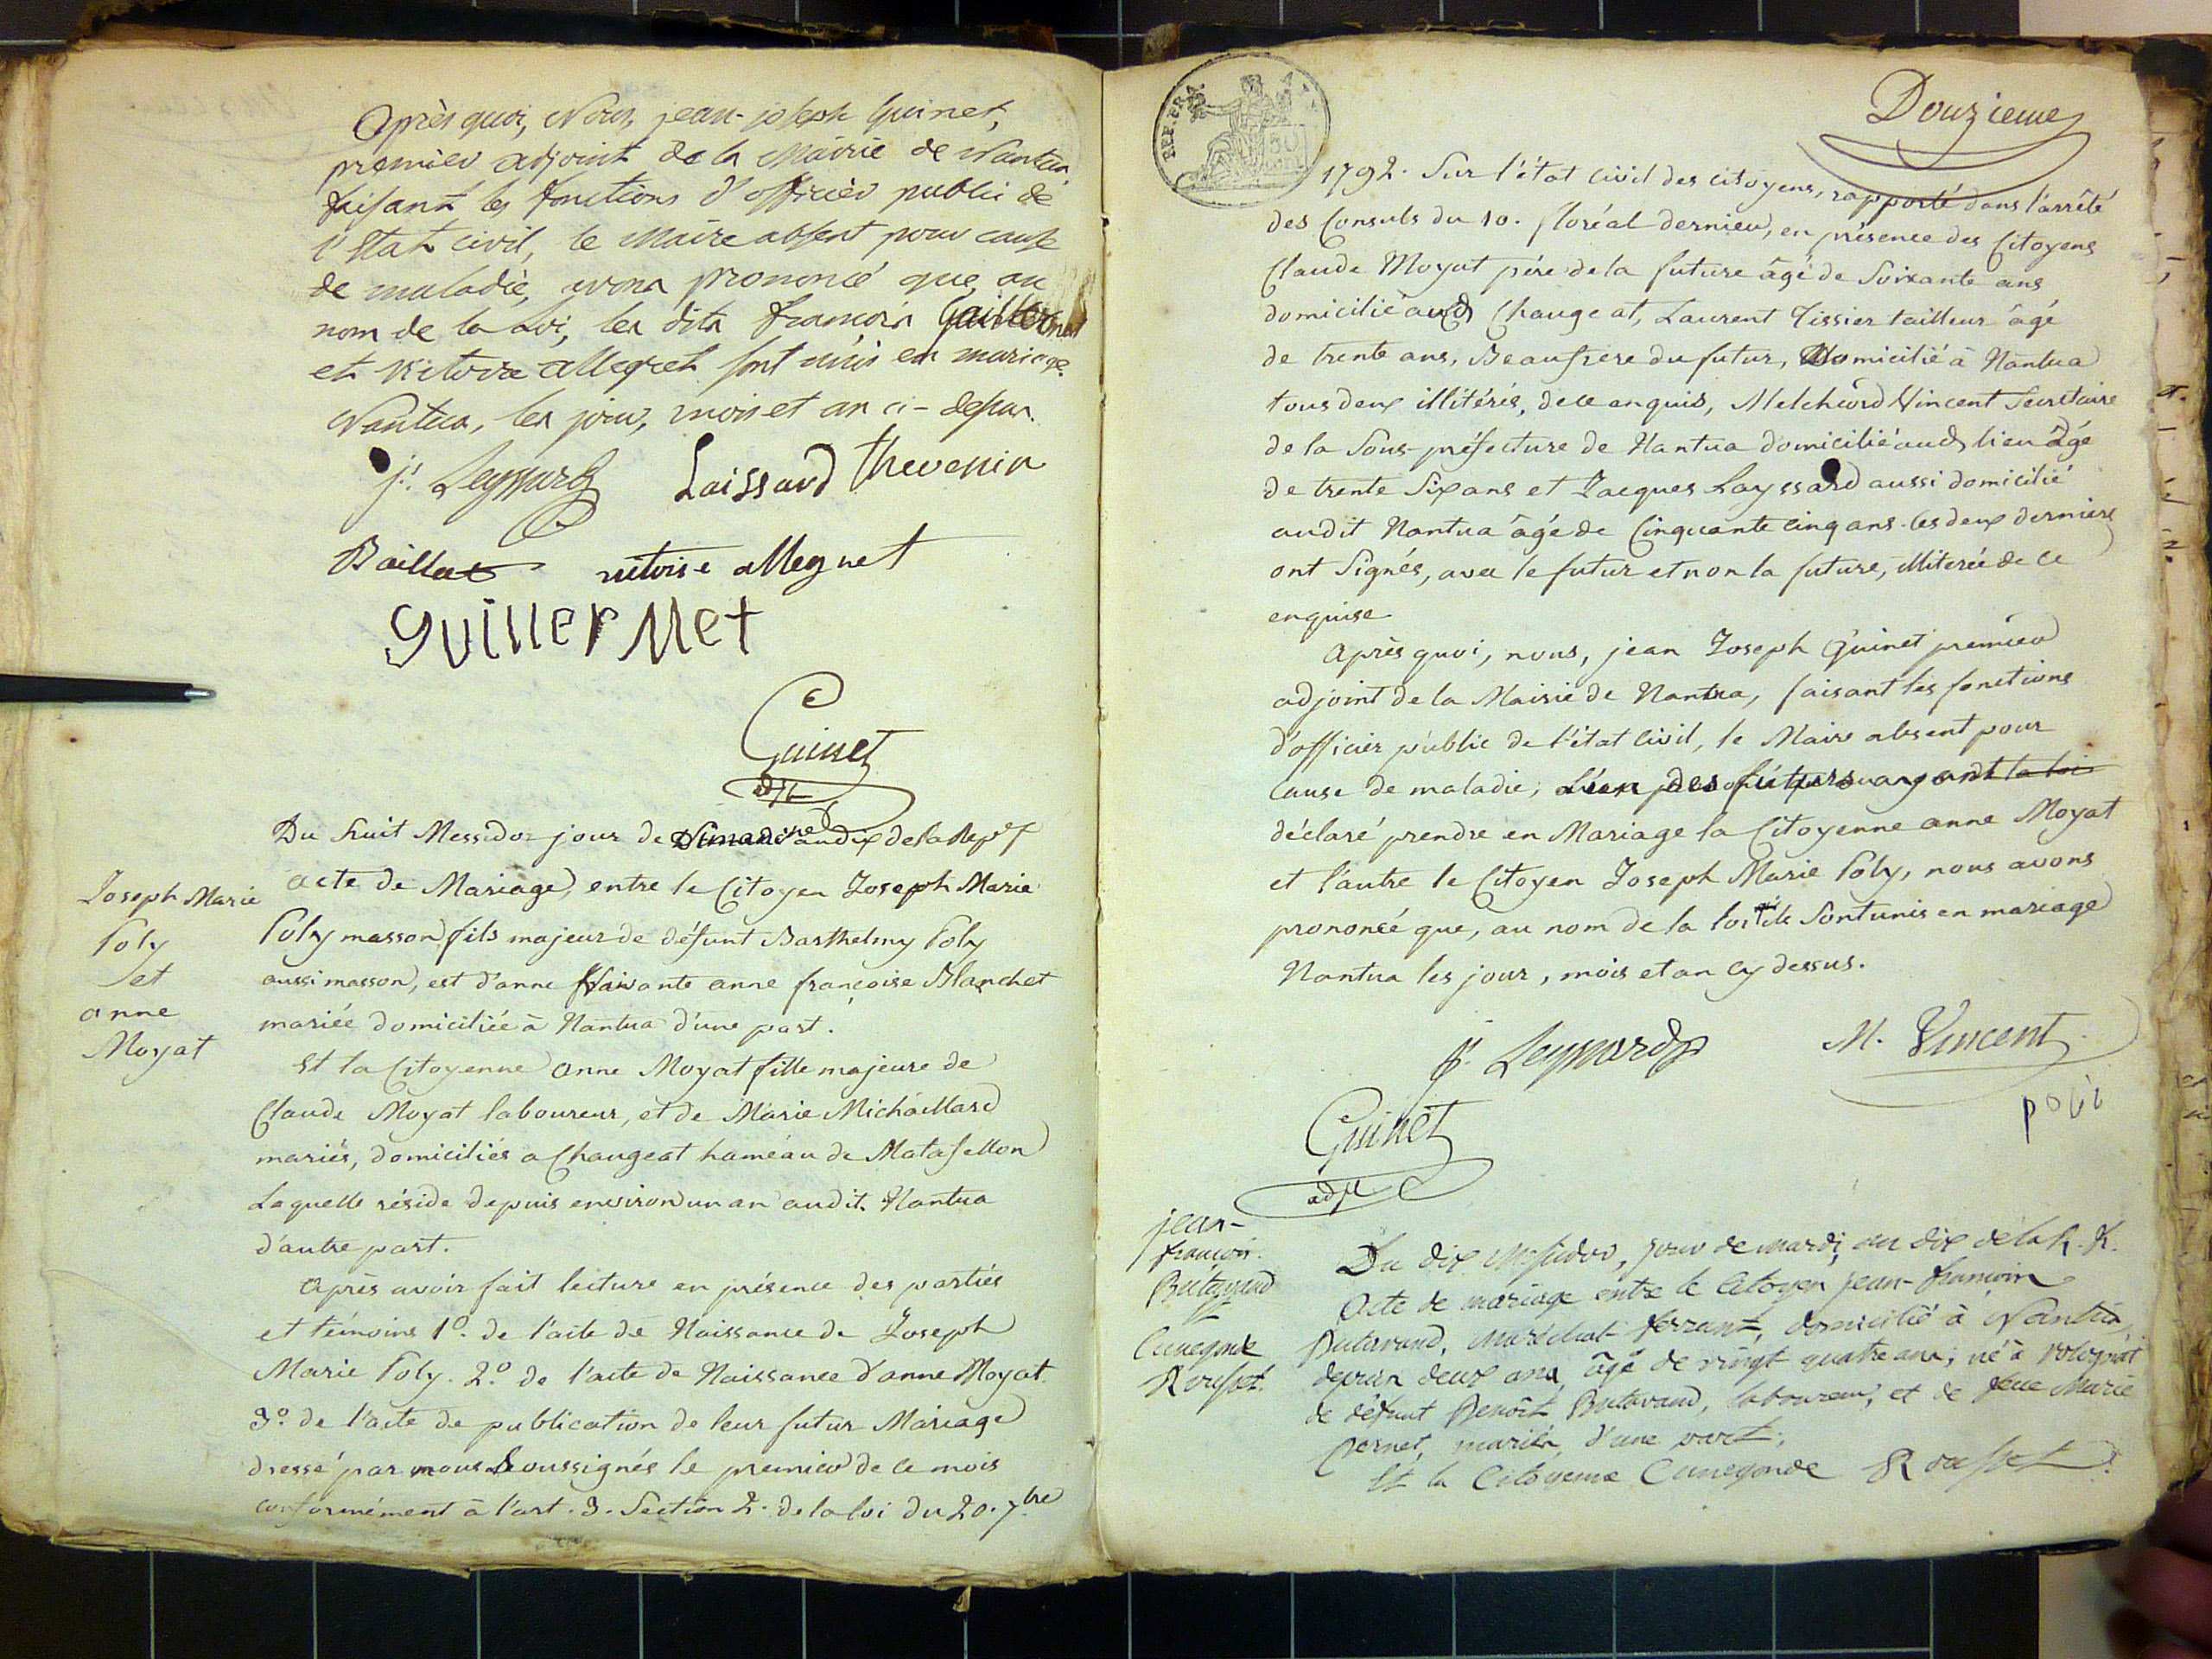 Après quoi, Nous, jean-joseph Guinet,
premier adjoint de la Mairie de Nantua
faisant les fonctions d'officier public de
l'Etat civil, le Maire absent pour cause
de maladie, avons prononcé que, au
nom de la Loi, les dits françois Guillermet
et Victoire allegret sont unis en mariage.
Nantua, les jour, mois et an ci-dessus.
j. Leyssard Laissard thevenin
Baillat victoire allegret
guillermet
Guinet
adjt
Du huit Messidor jour de Dimanche an dix de la Rep. f
Joseph Marie
Poly
et
anne
Moyat
acte de Mariage, entre le Citoyen Joseph Marie
Poly masson fils majeur de défunt Barthelmy Poly
aussi masson, est d'anne anne françoise Blanchet
mariée domiciliée à Nantua d'une part.
Et la Citoyenne anne Moyat fille majeure de
Claude Moyat laboureur, et de Marie Michaillard
mariés, domiciliés a Changeat haméau de Matafellon
Laquelle réside depuis environ un an audit Nantua
d'autre part.
après avoir fait lecture en présence des parties
et témoins 1º. de l'acte de Naissance de Joseph
Marie Poly. 2.º de l'acte de Naissance d'anne Moyat.
3º. de l'acte de publication de leur futur Mariage
dressé par nous Soussignés le premier de ce mois
conformément à l'art. 3. Section 2. de la loi du 20. 7bre
REP. FRA.
Douzieme
1792. Sur l'état civil des citoyens, rapporté dans l'arrêté
des Consuls du 10. floréal dernier, en présence des Citoyens
Claude Moyat pére de la future âgé de Soixante ans
domicilié aud Changeat, Laurent Tissier tailleur âgé
de trente ans, Beaufrere du futur, domicilié à Nantua
tous deux illitérés, de ce enquis, Melchiord Vincent Secrétaire
de la Sous-préfecture de Nantua domicilié aud lieu âgé
de trente Six ans et Jacques Layssard aussi domicilié
audit Nantua âgé de Cinquante cinq ans. les deux derniers
ont Signés, avec le futur et non la future, illiterée de ce
enquise
Après quoi, nous, jean Joseph Guinet premier
adjoint de la Mairie de Nantua, faisant les fonctions
d'officier public de l'état civil, le Maire absent pour
cause de maladie, L'un des futurs ayant la loi
déclaré prendre en Mariage la Citoyenne anne Moyat
et l'autre le Citoyen Joseph Marie Poly, nous avons
prononcé que, au nom de la loi ils Sont unis en mariage
Nantua les jour, mois et an cy dessus.
j. Leyssard M. Vincent
poli
Guinet
adjt
jean-
françois
Butavand
et
Cunegonde
Rousset.
Du dix Messidor, jour de mardi, an dix de la R. F.
Acte de mariage entre le Citoyen jean-françois
Butavand, maréchal ferrant, domicilié à Nantua,
depuis deux ans, âgé de vingt quatre ans, né à Volognat
de défunt Benoît Butavand, laboureur, et de feue Marie
Pernet, mariés, d'une part;
Et la Citoyenne Cunegonde Rousset